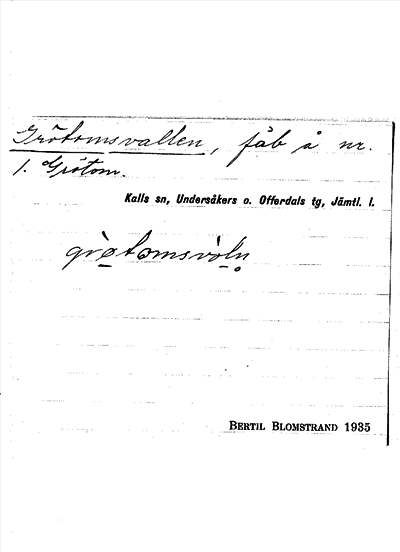 Grötomsvallen, fäb å nr.
1. Grötom.
Kalls sn, Undersåkers o. Offerdals tg, Jämtl. l.
grø̀tomsvòln̥
BERTIL BLOMSTRAND 1935